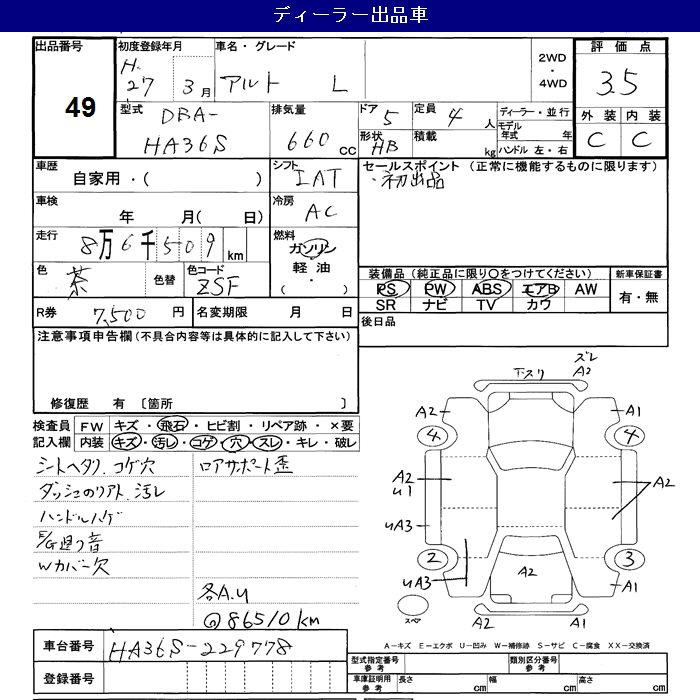 ディーラー出品車
出品番号 初度登録年月 車名・グレード 2WD・4WD 評価点
49 H.27 3月 アルト L 3.5
型式 DBA-HA36S 排気量 660cc ドア 5 定員 4人 ディーラー・並行 外装 内装
形状 HB 積載 kg モデル年式 年 ハンドル 左・右 C C
車歴 自家用・( ) シフト IAT セールスポイント (正常に機能するものに限ります)
・初出品
車検 年 月( 日) 冷房 AC
走行 8万6千509km 燃料 ガソリン 軽油 ( ・ )
色 茶 色替 色コード ZSF
装備品 (純正品に限り○をつけてください) 新車保証書
PS PW ABS エアB AW 有・無
SR ナビ TV カワ
R券 7,500円 名変期限 月 日
後日品
注意事項申告欄(不具合内容等は具体的に記入して下さい)
修復歴 有 〔箇所 〕
検査員 FW キズ・飛石・ヒビ割・リペア跡・×要
記入欄 内装 キズ・汚レ・コゲ・穴・スレ・キレ・破レ
シートヘタリ.コゲ穴 ロアサポート歪
汚レ
ハンドルハゲ
音
Wカバー欠
各A.U
@86510km
下スリ ズレ A2
A2 A1
4 4
A2 U1 A2
UA3
2 3
UA3 A2 A1
スペア A2 A1
A－キズ E－エクボ U－凹み W－補修跡 S－サビ C－腐食 XX－交換済
車台番号 HA36S-229778
登録番号
型式指定番号 参考 類別区分番号 参考
車庫証明用 参考 長さ cm 幅 cm 高さ cm